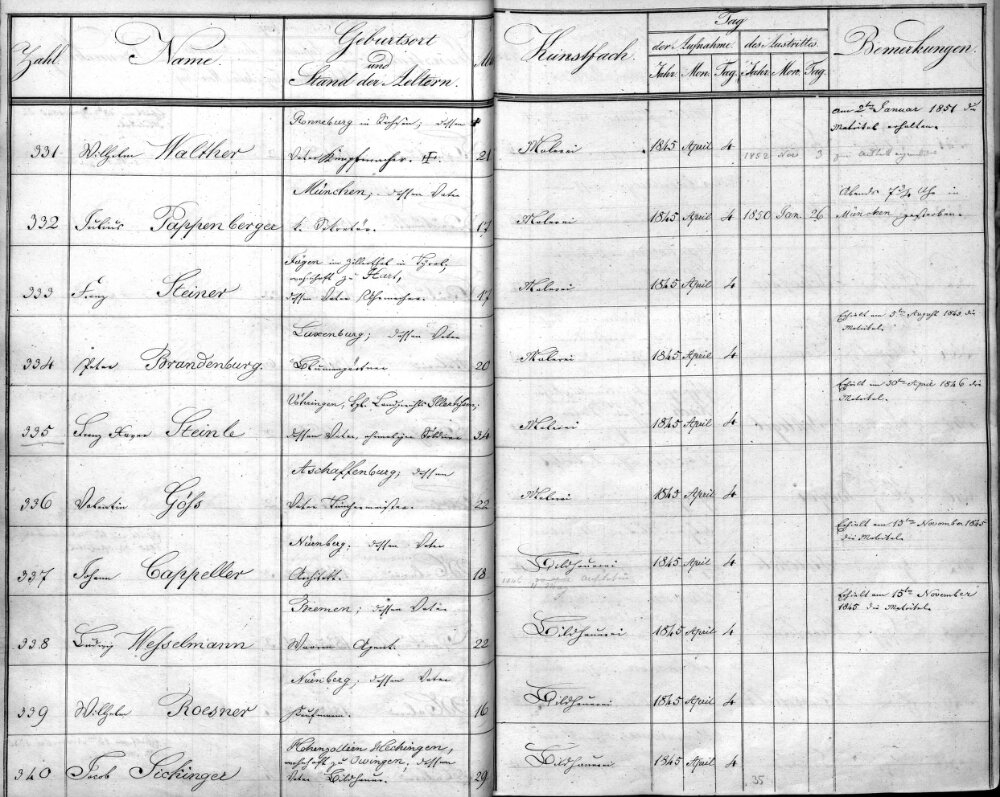 Zahl. Name. Geburtsort und Stand der Aeltern. Alt. Kunstfach. Tag der Aufnahme. des Austrittes. Bemerkungen.
Jahr. Mon. Tag. Jahr. Mon. Tag.
am 2ten Januar 1851 die
Matrikel erhalten.
Ronneburg in Sachsen, dessen
331 Wilhelm Walther Vater Knopfmacher. 21 Malerei 1845 April 4 1852 Nov 3
München, dessen Vater
Abends 7 3/4 Uhr in
332 Julius Pappenberger k. Sekretär. 17 Malerei 1845 April 4 1850 Jan. 26 München gestorben.
Fügen im Zillerthal in Tyrol,
wohnhaft zu Hart,
333 Franz Steiner dessen Vater Uhrmacher. 17 Malerei 1845 April 4
Erhielt am 5ten August 1845 die
Matrikel.
Luxenburg; dessen Vater
334 Peter Brandenburg. Blumengärtner 20 Malerei 1845 April 4
Erhielt am 30ten April 1846 die
Matrikel.
Vöhringen, kgl. Landgerichts Illertissen,
335 Franz Xaver Steinle dessen Vater, ehemaliger Söldner 34 Malerei 1845 April 4
Aschaffenburg; dessen
336 Valentin Göß Vater Tünchermeister. 22 Malerei 1845 April 4
Erhielt am 15ten November 1845
die Matrikel.
Nürnberg; dessen Vater
337 Johann Cappeller Architekt. 18 Bildhauerei 1845 April 4
Erhielt am 15ten November
1845 die Matrikel.
Bremen; dessen Vater
338 Ludwig Wesselmann Waaren Agent. 22 Bildhauerei 1845 April 4
Nürnberg; dessen Vater
339 Wilhelm Roesner Kaufmann. 16 Bildhauerei 1845 April 4
Hohenzollern Hechingen,
wohnhaft zu Owingen; dessen
340 Jacob Sichinger Vater Bildhauer. 29 Bildhauerei 1845 April 4